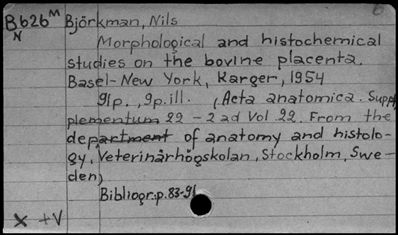 B626 M Björkman, Nils
N
Morphological and histochemical
studies on the bovine placenta.
Basel-New York, Karger, 1954
91p., 9p.ill. (Acta anatomica. Supp
plementum 22 - 2 ad Vol 22. From the
department of anatomy and histolo-
gy, Veterinärhögskolan, Stockholm, Swe-
den)
Bibliogr.p.83-91
X +V